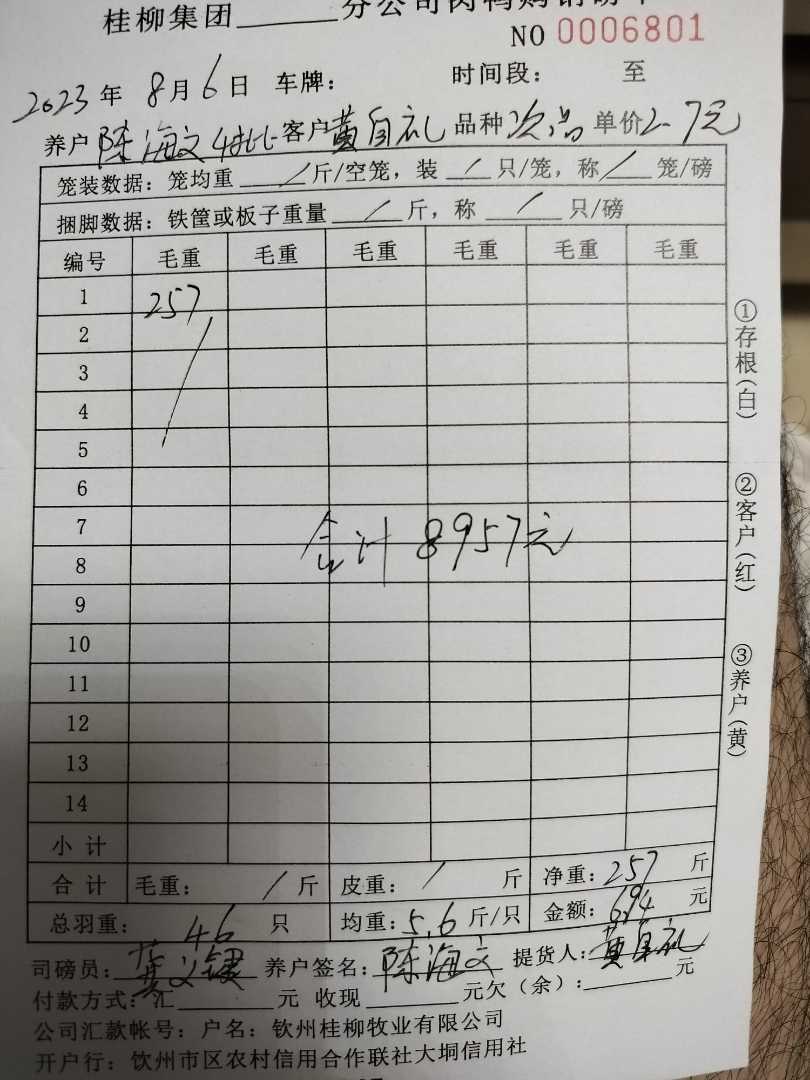 桂柳集团______分公司肉鸭购销磅单
NO 0006801
2023年 8月6日 车牌: 时间段: 至
养户 陈海文4批 客户黄自礼 品种次品 单价2.7元
笼装数据: 笼均重 / 斤/空笼, 装 / 只/笼, 称 / 笼/磅
捆脚数据: 铁筐或板子重量 / 斤, 称 / 只/磅
编号 毛重 毛重 毛重 毛重 毛重 毛重
1 257
2
3
4
5
6
7
合计 8957元
8
9
10
11
12
13
14
小计
合计 毛重: / 斤 皮重: / 斤 净重: 257 斤
总羽重: 46 只 均重: 5.6 斤/只 金额: 694 元
司磅员: 养户签名: 陈海文 提货人: 黄自礼
付款方式: 汇______元 收现______元欠(余):______元
公司汇款帐号: 户名: 钦州桂柳牧业有限公司
开户行: 钦州市区农村信用合作联社大垌信用社
①存根(白)
②客户(红)
③养户(黄)